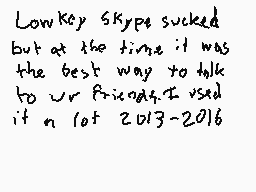 Lowkey skype sucked
but at the time it was
the best way to talk
to ur friends. I used
it a lot 2013-2016